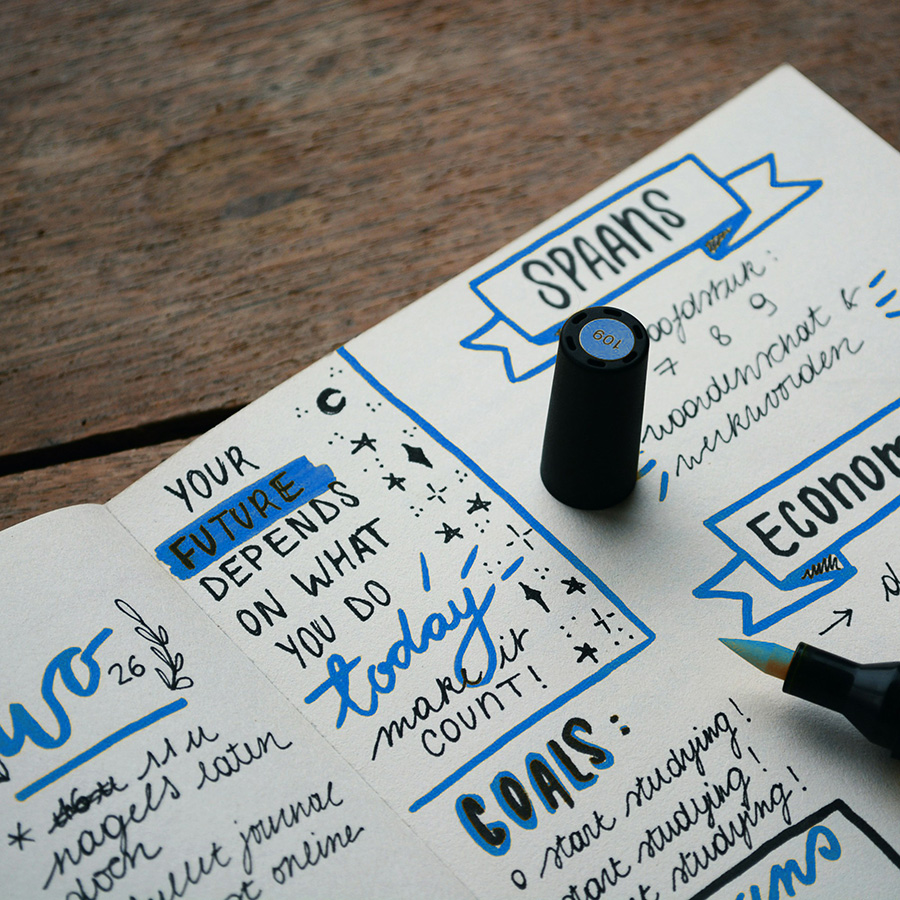 wo
26
11 u
* nagels laten
doch
bullet journal
online
YOUR
FUTURE
DEPENDS
ON WHAT
YOU DO
today
make it
COUNT!
GOALS:
o start studying!
start studying!
studying!
SPAANS
7 8 9
woordenschat &
werkwoorden
109
ECONOM
→